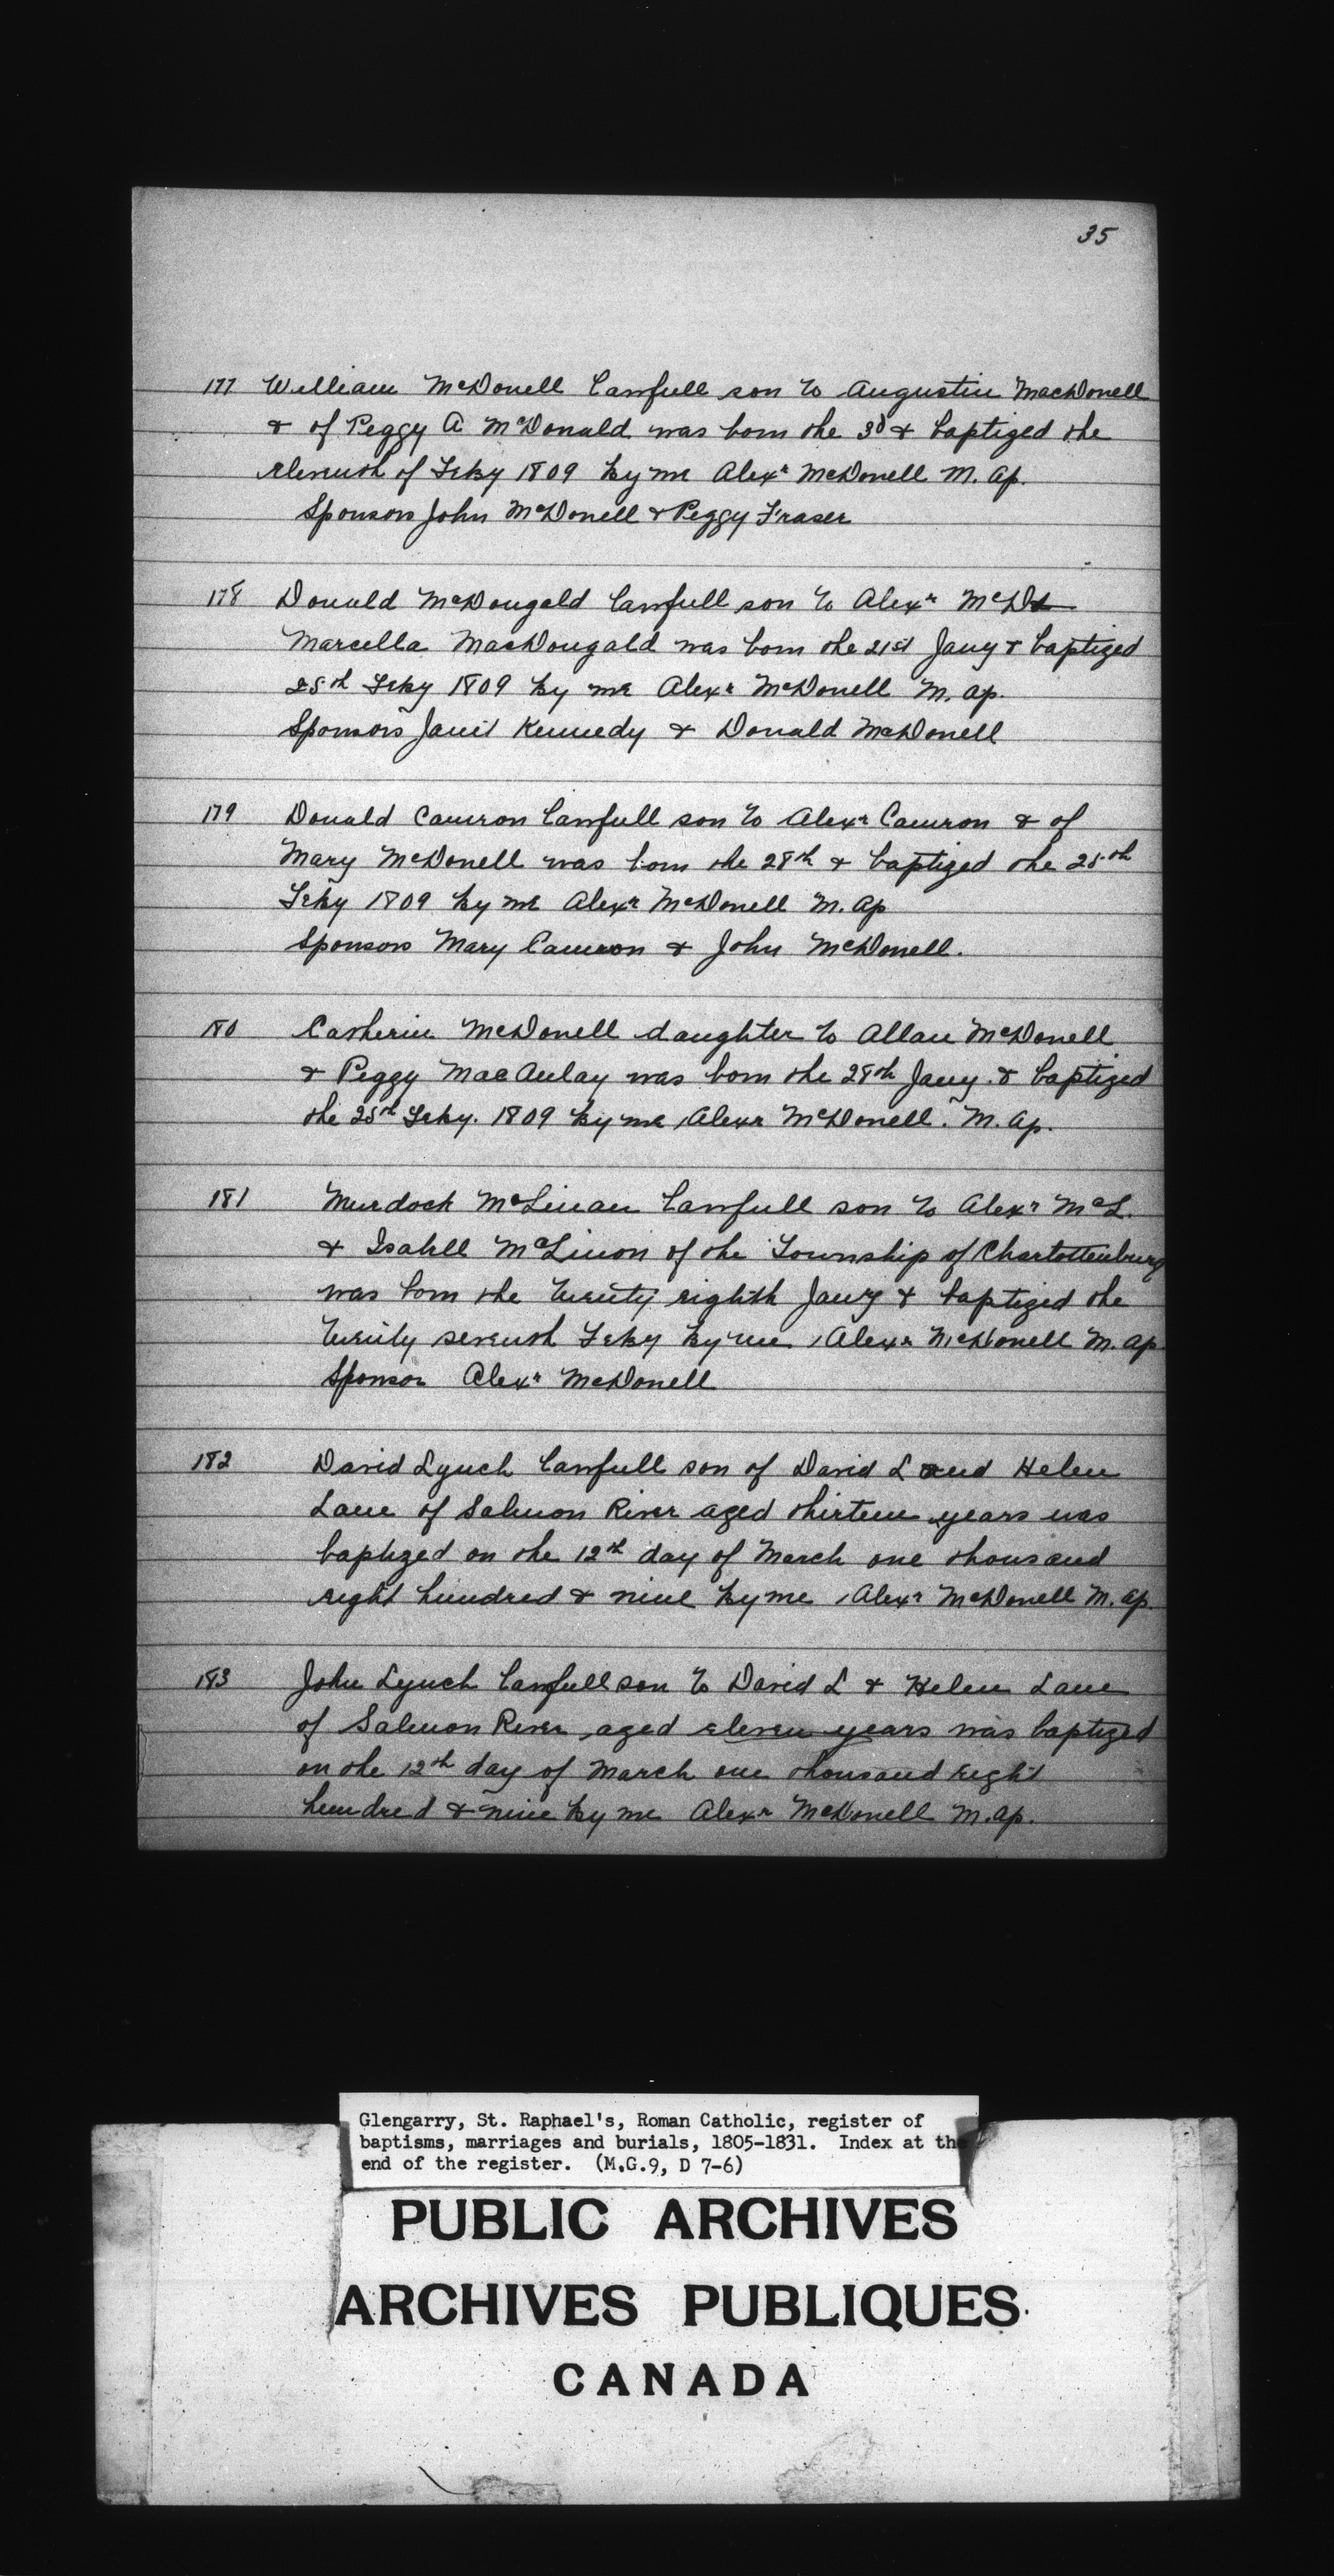 35
177 William McDonell lawfull son to Augustin MacDonell
& of Peggy A McDonald was born the 3d & baptized the
eleventh of Feby 1809 by me Alexr McDonell M. Ap.
Sponsors John McDonell & Peggy Fraser
178 Donald McDougald lawfull son to Alexr McD &
Marcella MacDougald was born the 21st Jany & baptized
25th Feby 1809 by me Alexr McDonell M. Ap.
Sponsors Janet Kennedy & Donald McDonell
179 Donald Cameron lawfull son to Alexr Cameron & of
Mary McDonell was born the 28th & baptized the 25th
Feby 1809 by me Alexr McDonell M. Ap
Sponsors Mary Cameron & John McDonell.
180 Catherin McDonell daughter to Allan McDonell
& Peggy MacAulay was born the 28th Jany. & baptized
the 25th Feby. 1809 by me Alexr McDonell. M. Ap.
181 Murdock McLinan lawfull son to Alexr McL.
& Isabell McLinon of the Township of Charlottenburg
was born the twenty eighth Jany & baptized the
twenty seventh Feby by me Alexr McDonell M. Ap
Sponsor Alexr McDonell
182 David Lynch lawfull son of David L and Helen
Lane of Salmon River aged thirteen years was
baptized on the 12th day of March one thousand
eight hundred & nine by me Alexr McDonell M. Ap.
183 John Lynch lawfull son to David L & Helen Lane
of Salmon River aged eleven years was baptized
on the 12th day of March one thousand eight
hundred & nine by me Alexr McDonell M. Ap.
Glengarry, St. Raphael's, Roman Catholic, register of
baptisms, marriages and burials, 1805-1831. Index at the
end of the register. (M.G.9, D 7-6)
PUBLIC ARCHIVES
ARCHIVES PUBLIQUES
CANADA